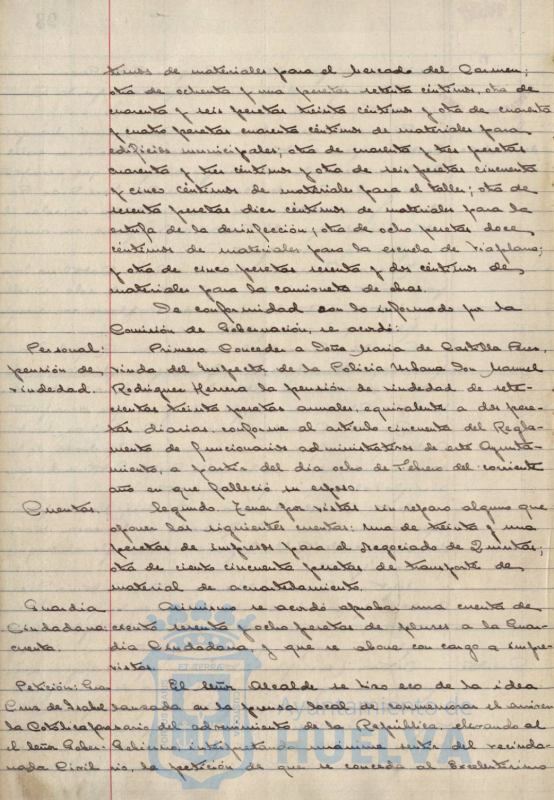 timos de materiales para el Mercado del Carmen;
otra de ochenta y una pesetas setenta céntimos, otra de
cuarenta y seis pesetas treinta céntimos y otra de cuarenta
y cuatro pesetas cuarenta céntimos de materiales para
edificios municipales; otra de cuarenta y tres pesetas
cuarenta y tres céntimos y otra de seis pesetas cincuenta
y cinco céntimos de materiales para el taller; otra de
sesenta pesetas diez céntimos de materiales para la
estufa de la desinfección; otra de ocho pesetas doce
céntimos de materiales para la escuela de Viaplana;
y otra de cinco pesetas sesenta y dos céntimos de
materiales para la camioneta de obras.
De conformidad con lo informado por la
Comisión de Gobernación, se acordó:
Personal: Primero. Conceder a Doña Maria de Castilla
pensión de viuda del Inspector de la Policia Urbana Don Manuel
viudedad. Rodriguez Herrera la pensión de viudedad de sete-
cientas treinta pesetas anuales, equivalente a dos pese-
tas diarias, conforme al articulo cincuenta del Regla-
mento de funcionarios administrativos de este Ayunta-
miento, a partir del dia ocho de Febrero del corriente
año en que falleció su esposo.
Cuentas. Segundo. Tener por vistas sin reparo alguno que
oponer las siguientes cuentas: una de treinta y una
pesetas de impresos para el Negociado de Quintas;
otra de ciento cincuenta pesetas de transporte de
material de acuartelamiento.
Guardia Asimismo se acordó aprobar una cuenta de
Ciudadana: ciento y ocho pesetas de pluses a la Guar-
cuenta. dia Ciudadana, y que se abone con cargo a impre-
vistos.
Petición: Gran El Señor Alcalde se hizo eco de la idea
Cruz de Isabel lanzada en la prensa local de conmemorar el aniver
la Católica para sario del advenimiento de la República, elevando al
el Señor Gober- Gobierno, interpretando unánime sentir del vecinda-
nador Civil rio, la petición de que se conceda al Excelentisimo
Ayuntamiento de
HUELVA